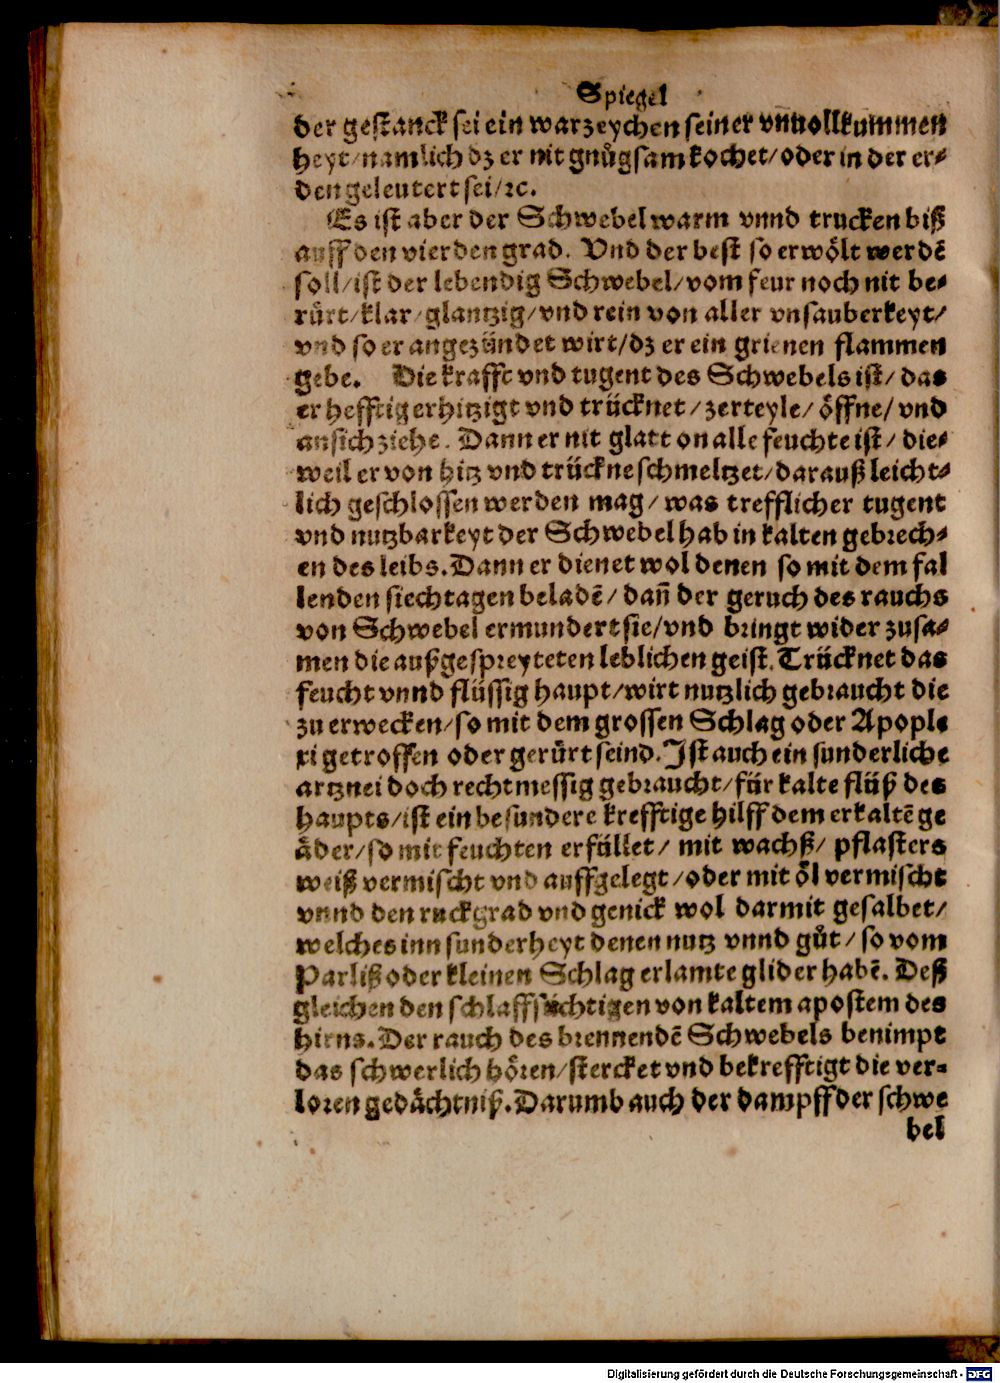 Spiegel
der gestanck sei ein warzeychen seiner vnuollkummen
heyt/namlich dz er nit gnůgsam kochet/oder in der er⸗
den geleutert sei/ꝛc.
Es ist aber der Schwebel warm vnnd trucken biß
auff den vierden grad. Vnd der best so erwoͤlt werdē
soll/ist der lebendig Schwebel/vom feur noch nit be⸗
ruͤrt/klar/glantzig/vnd rein von aller vnsauberkeyt/
vnd so er angezündet wirt/dz er ein grienen flammen
gebe. Die krafft vnd tugent des Schwebels ist/das
er hefftig erhitzigt vnd trücknet/zerteyle/öffne/vnd
an sich ziehe. Dann er nit glatt on alle feuchte ist/die⸗
weil er von hitz vnd trückne schmeltzet/darauß leicht⸗
lich geschlossen werden mag/was trefflicher tugent
vnd nutzbarkeyt der Schwebel hab in kalten gebrech⸗
en des leibs. Dann er dienet wol denen so mit dem fal
lenden siechtagen beladē/dañ der geruch des rauchs
von Schwebel ermundert sie/vnd bringt wider zusa⸗
men die außgespreyteten leblichen geist. Trücknet das
feucht vnnd flüssig haupt/wirt nutzlich gebraucht die
zu erwecken/so mit dem grossen Schlag oder Apople
xi getroffen oder gerürt seind. Ist auch ein sunderliche
artznei doch rechtmessig gebraucht/für kalte flüß des
haupts/ist ein besundere krefftige hilff dem erkaltē ge
äder/so mit feuchten erfüllet/mit wachß/pflasters
weiß vermischt vnd auffgelegt/oder mit öl vermischt
vnnd den ruckgrad vnd genick wol darmit gesalbet/
welches inn sunderheyt denen nutz vnnd gůt/so vom
Parliß oder kleinen Schlag erlamte glider habē. Deß
gleichen den schlaffsüchtigen von kaltem apostem des
hirns. Der rauch des brennendē Schwebels benimpt
das schwerlich hören/stercket vnd bekrefftigt die ver⸗
loren gedächtniß. Darumb auch der dampff der schwe
bel
Digitalisierung gefördert durch die Deutsche Forschungsgemeinschaft - DFG